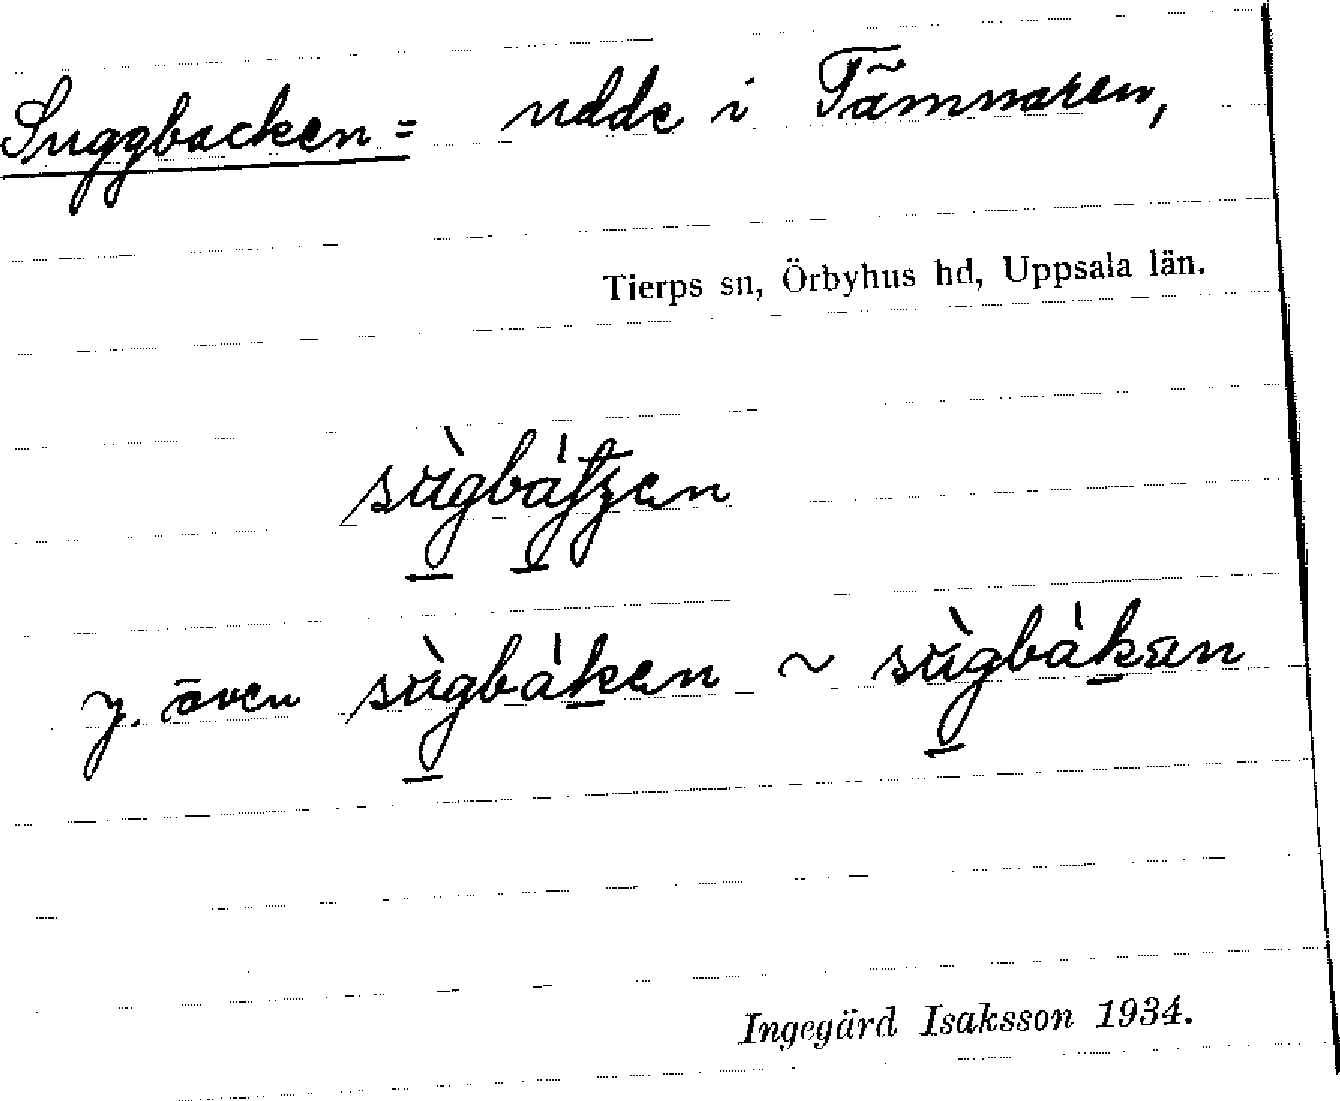 Suggbacken = udde i Tämnaren,
Tierps sn, Örbyhus hd, Uppsala län.
sùgbátʒen
y. även sùgbáken ~ sùgbákän
Ingegärd Isaksson 1934.